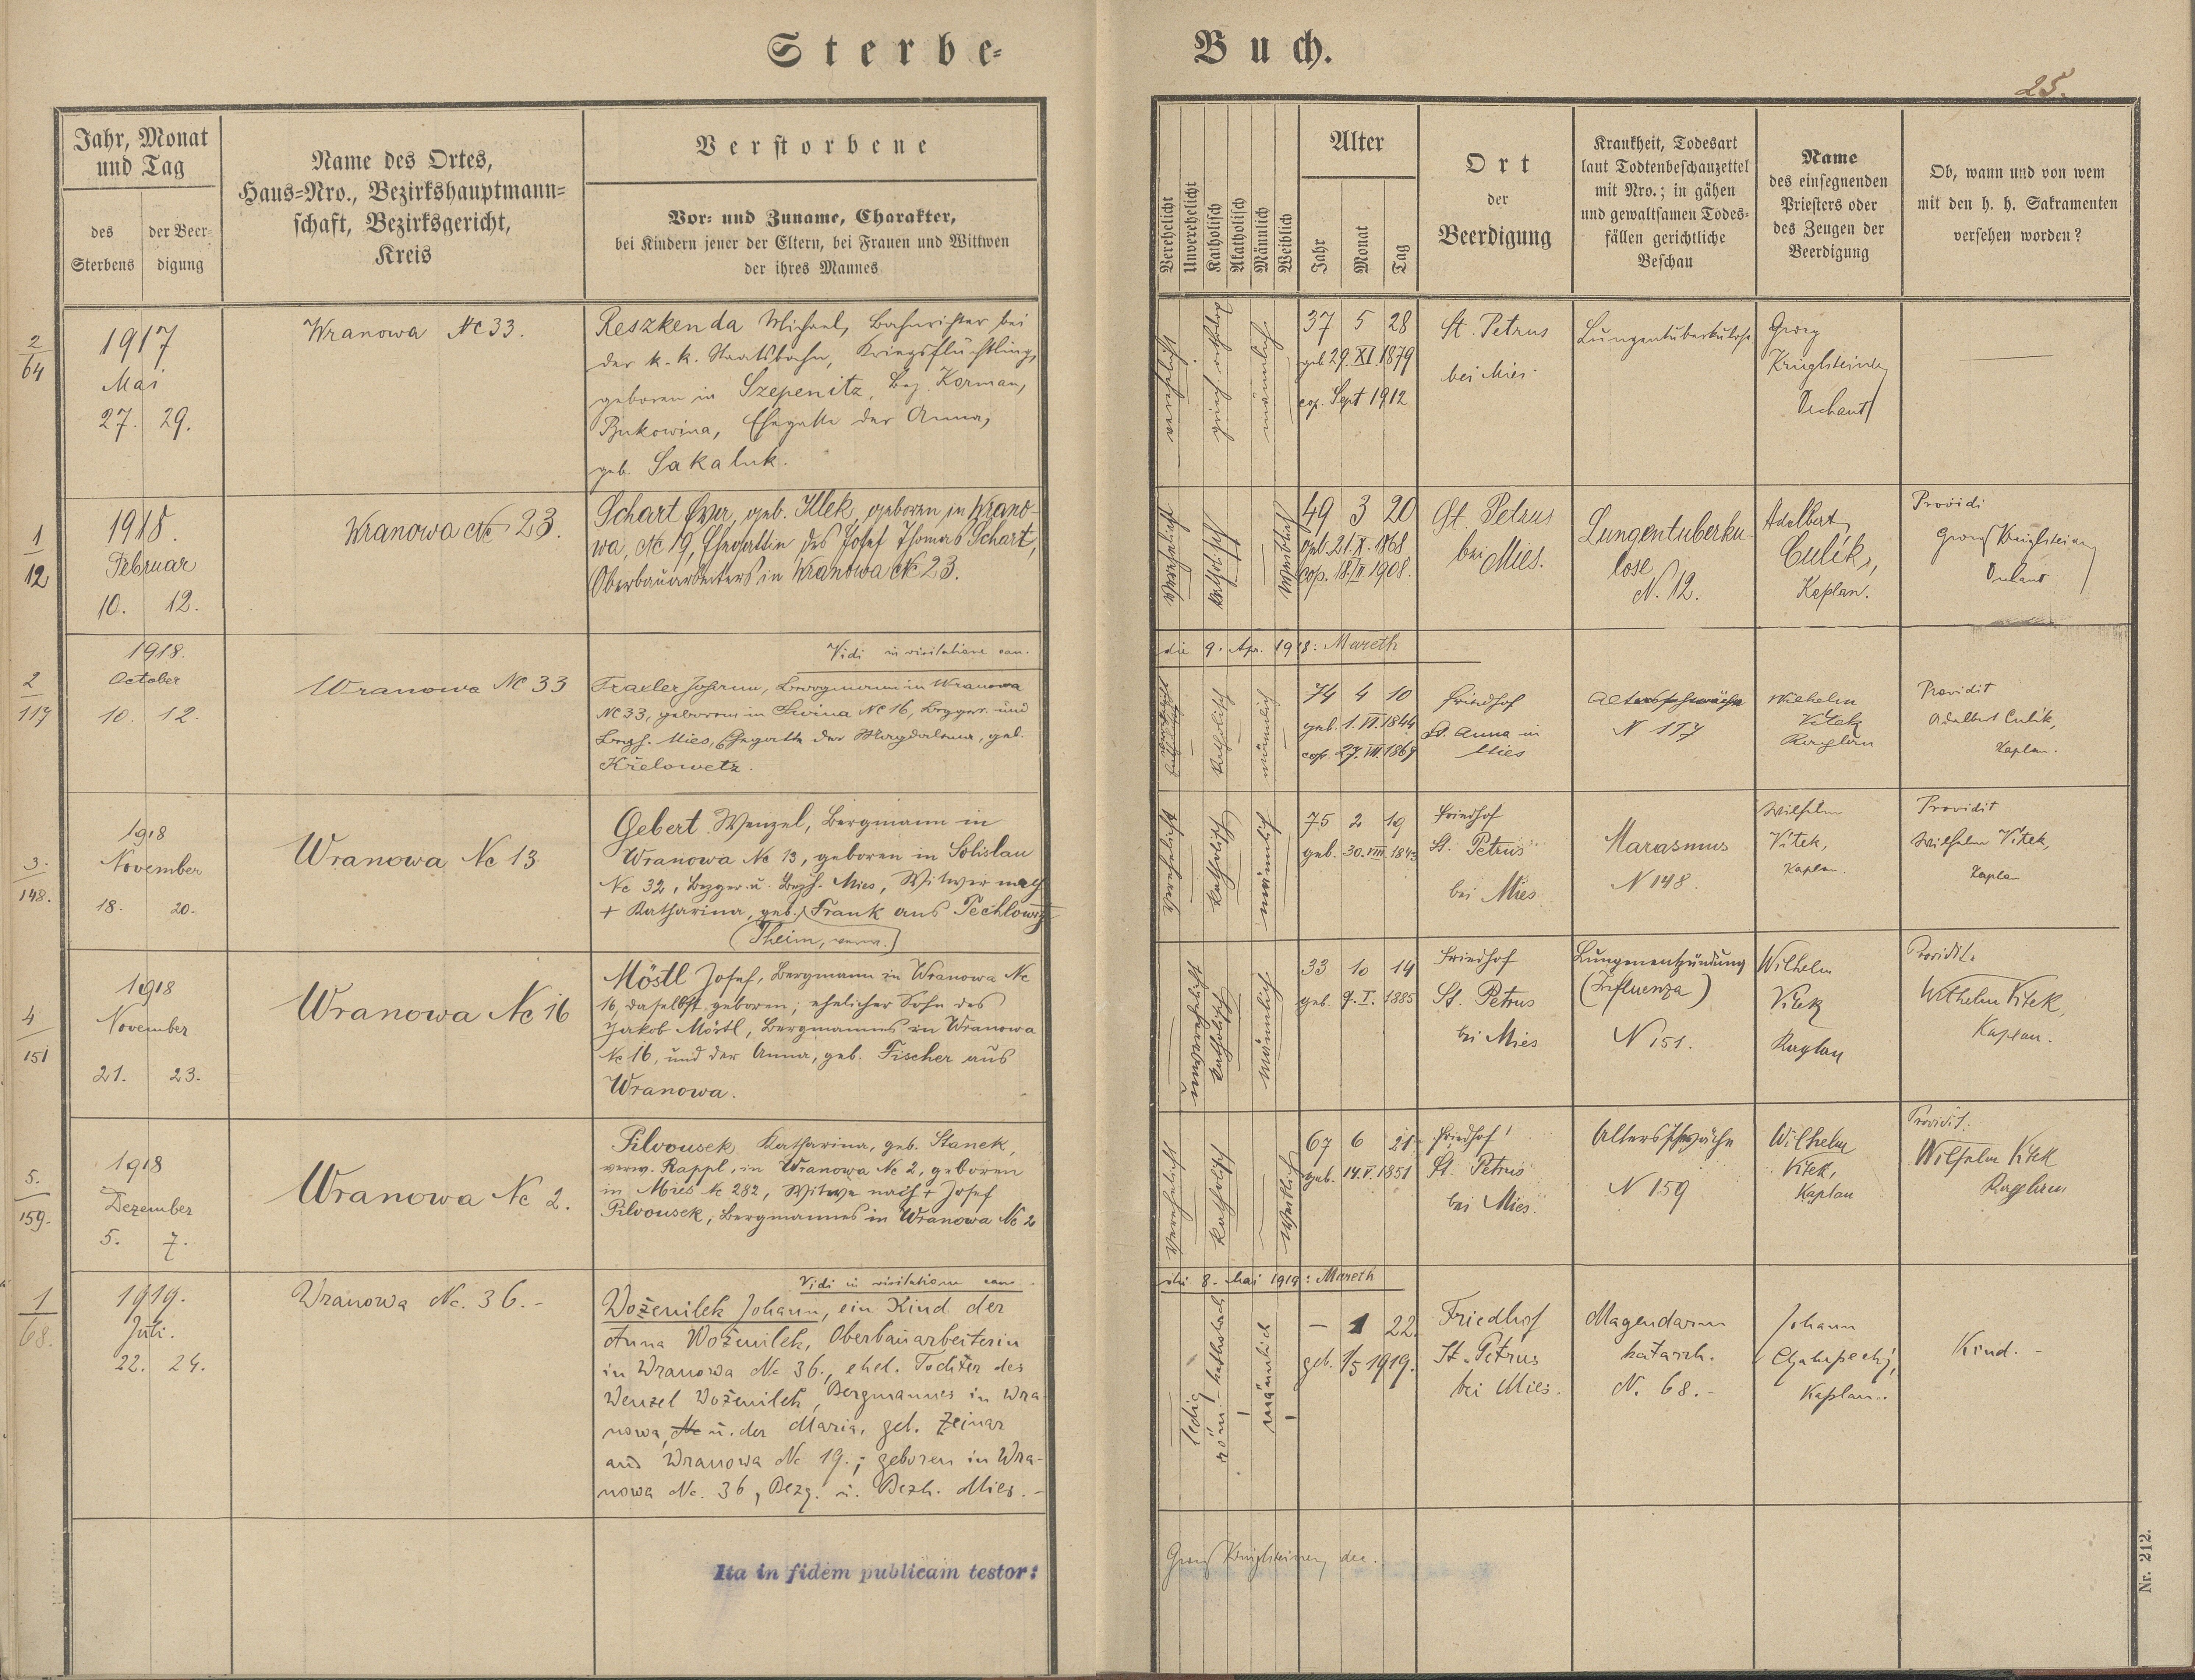 Sterbe-
Buch.
25.
Jahr, Monat
und Tag
des
Sterbens
der Beer-
digung
Name des Ortes,
Haus-Nro., Bezirkshauptmann-
schaft, Bezirksgericht,
Kreis
Verstorbene
Vor- und Zuname, Charakter,
bei Kindern jener der Eltern, bei Frauen und Wittwen
der ihres Mannes
Verehelicht
Unverehelicht
Katholisch
Akatholisch
Männlich
Weiblich
Alter
Jahr
Monat
Tag
Ort
der
Beerdigung
Krankheit, Todesart
laut Todtenbeschauzettel
mit Nro.; in gähen
und gewaltsamen Todes-
fällen gerichtliche
Beschau
Name
des einsegnenden
Priesters oder
des Zeugen der
Beerdigung
Ob, wann und von wem
mit den h. h. Sakramenten
versehen worden?
2
64
1917
Mai
27. 29.
Wranowa Nc 33.
Reszkenda Michael, Bahnrichter bei
der k. k. Staatsbahn, Kriegsflüchtling,
geboren in Szepenitz, Bez. Kozman,
Bukowina, Ehegatte der Anna,
geb. Sakaluk.
verehelicht
männlich
37 5 28
geb 29. XI. 1879
cop. Sept 1912
St. Petrus
bei Mies.
Lungentuberkulose
Georg
Krüglsteiner
Dechant
1
12
1918.
Februar
10. 12.
Wranowa Nc 23.
Schart Eva, geb. Illek, geboren in Wrano-
wa, Nc 19, Ehegattin des Josef Thomas Schart,
Oberbauarbeiters in Wranowa Nc 23.
verehelicht
katholisch
weiblich
49 3 20
geb. 21. X. 1868
cop. 18./II 1908.
St. Petrus
bei Mies.
Lungentuberku-
lose
N. 12.
Adalbert
Culík,
Kaplan.
Providi
Georg Krüglsteiner
Dechant
Vidi in visitatione can.
die 9. Apr. 1918: Mareth
2
117
1918.
October
10. 12.
Wranowa Nc 33
Traxler Johann, Bergmann in Wranowa
Nc 33, geboren in Swina Nc 16, Bezger. und
Bezh. Mies, Ehegatte der Magdalena, geb.
Křelowetz.
katholisch
männlich
74 4 10
geb. 1. VI. 1844
cop. 27. VII. 1869
Friedhof
St. Anna in
Mies
Altersschwäche
N 117
Wilhelm
Vitek
Kaplan
Providit
Adalbert Culík,
Kaplan.
3.
148.
1918
November
18. 20.
Wranowa Nc 13
Gebert Wenzel, Bergmann in
Wranowa Nc 13, geboren in Solislau
Nc 32, Bezger. u. Bezh. Mies, Witwer nach
+ Katharina, geb. Frank aus Techlowitz
(Theim, verw.)
verehelicht
katholisch
männlich
75 2 19
geb. 30. VIII. 1843
Friedhof
St. Petrus
bei Mies
Marasmus
N 148.
Wilhelm
Vitek,
Kaplan.
Providit
Wilhelm Vitek,
Kaplan
4
151
1918
November
21. 23.
Wranowa Nc 16
Möstl Josef, Bergmann in Wranowa Nc
16, daselbst geboren, ehelicher Sohn des
Jakob Möstl, Bergmannes in Wranowa
Nc 16, und der Anna, geb. Fischer aus
Wranowa.
unverehelicht
katholisch
männlich
33 10 14
geb. 9. I. 1885
Friedhof
St. Petrus
bei Mies
Lungenentzündung
(Influenza)
N 151.
Wilhelm
Vitek
Kaplan
Providit.
Wilhelm Vitek,
Kaplan.
5.
159.
1918
Dezember
5. 7.
Wranowa Nc 2.
Pilvousek Katharina, geb. Stanek,
verw. Rappl, in Wranowa Nc 2, geboren
in Mies Nc 282, Witwe nach + Josef
Pilvousek, Bergmannes in Wranowa Nc 2
verehelicht
katholisch
weiblich
67 6 21
geb. 14. V. 1851
Friedhof
St. Petrus
bei Mies.
Altersschwäche
N 159
Wilhelm
Vitek,
Kaplan
Providit.
Wilhelm Vitek
Kaplan
Vidi in visitatione can.
die 8. Mai 1919: Mareth
1
68.
1919.
Juli.
22. 24.
Wranowa Nc. 36.-
Woženilek Johann, ein Kind der
Anna Woženilek, Oberbauarbeiterin
in Wranowa Nc 36., ehel. Tochter des
Wenzel Woženilek, Bergmannes in Wra-
nowa, Nc u. der Maria, geb. Zeinar
aus Wranowa Nc 19.; geboren in Wra-
nowa Nc. 36, Bezg. u. Bezh. Mies.-
ledig
röm.-katholisch
männlich
- 1 22.
geb. 1/5 1919.
Friedhof
St. Petrus
bei Mies.
Magendarm
katarrh.
N. 68.-
Johann
Kaplan.
Kind.-
Ita in fidem publicam testor:
Georg Krüglsteiner, dec.
Nr. 212.